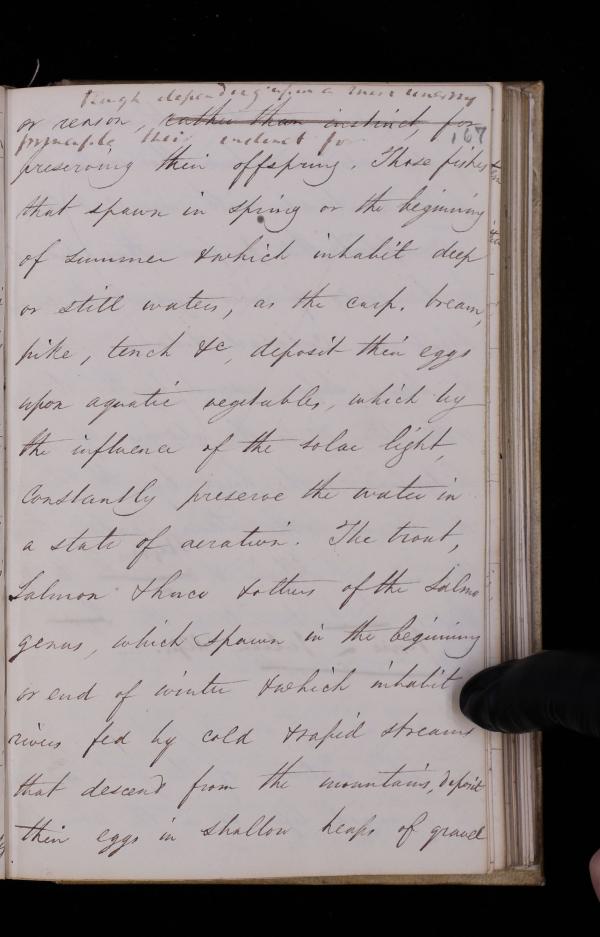 though depending upon a
or reason, rather than instinct, for 167
their instinct for
preserving their offspring. Those fishes
that spawn in spring or the beginning
of summer & which inhabit deep
or still waters, as the carp, bream,
pike, tench &c, deposit their eggs
upon aquatic vegetables, which by
the influence of the solar light,
constantly preserve the water in
a state of aeration. The trout,
Salmon & others of the Salmo
genus, which spawn in the begining
or end of winter & which inhabit
rivers fed by cold & rapid streams
that descend from the mountains, deposit
their eggs in shallow heaps of gravel